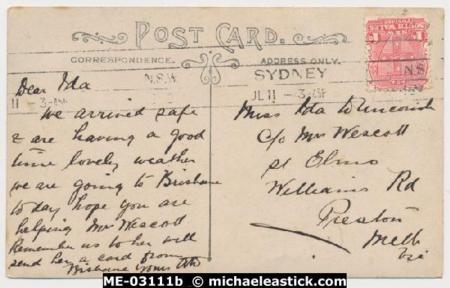 POST CARD.
CORRESPONDENCE.
ADDRESS ONLY.
N.S.W.
SYDNEY
JL 11 - 3
11 3
N.S.
ONE PENNY
Dear Ida
we arrived safe
& are having a good
time lovely weather
we are going to Brisbane
to day hope you are
helping Mrs Wescott
Remember us to her will
send her a card from
Brisbane yours
Miss Ida
c/o Mrs Wescott
St Elmo
Williams Rd
Preston
Melb
Vic
ME-03111b © michaeleastick.com